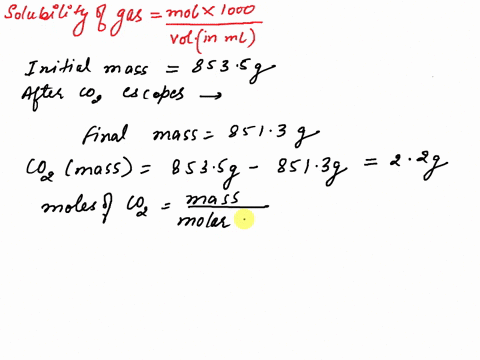 Solubility of gas = mol × 1000 / vol (in ml)
Initial mass = 853.5g
After CO2 escapes →
Final mass = 851.3g
CO2 (mass) = 853.5g - 851.3g = 2.2g
moles of CO2 = mass / molar